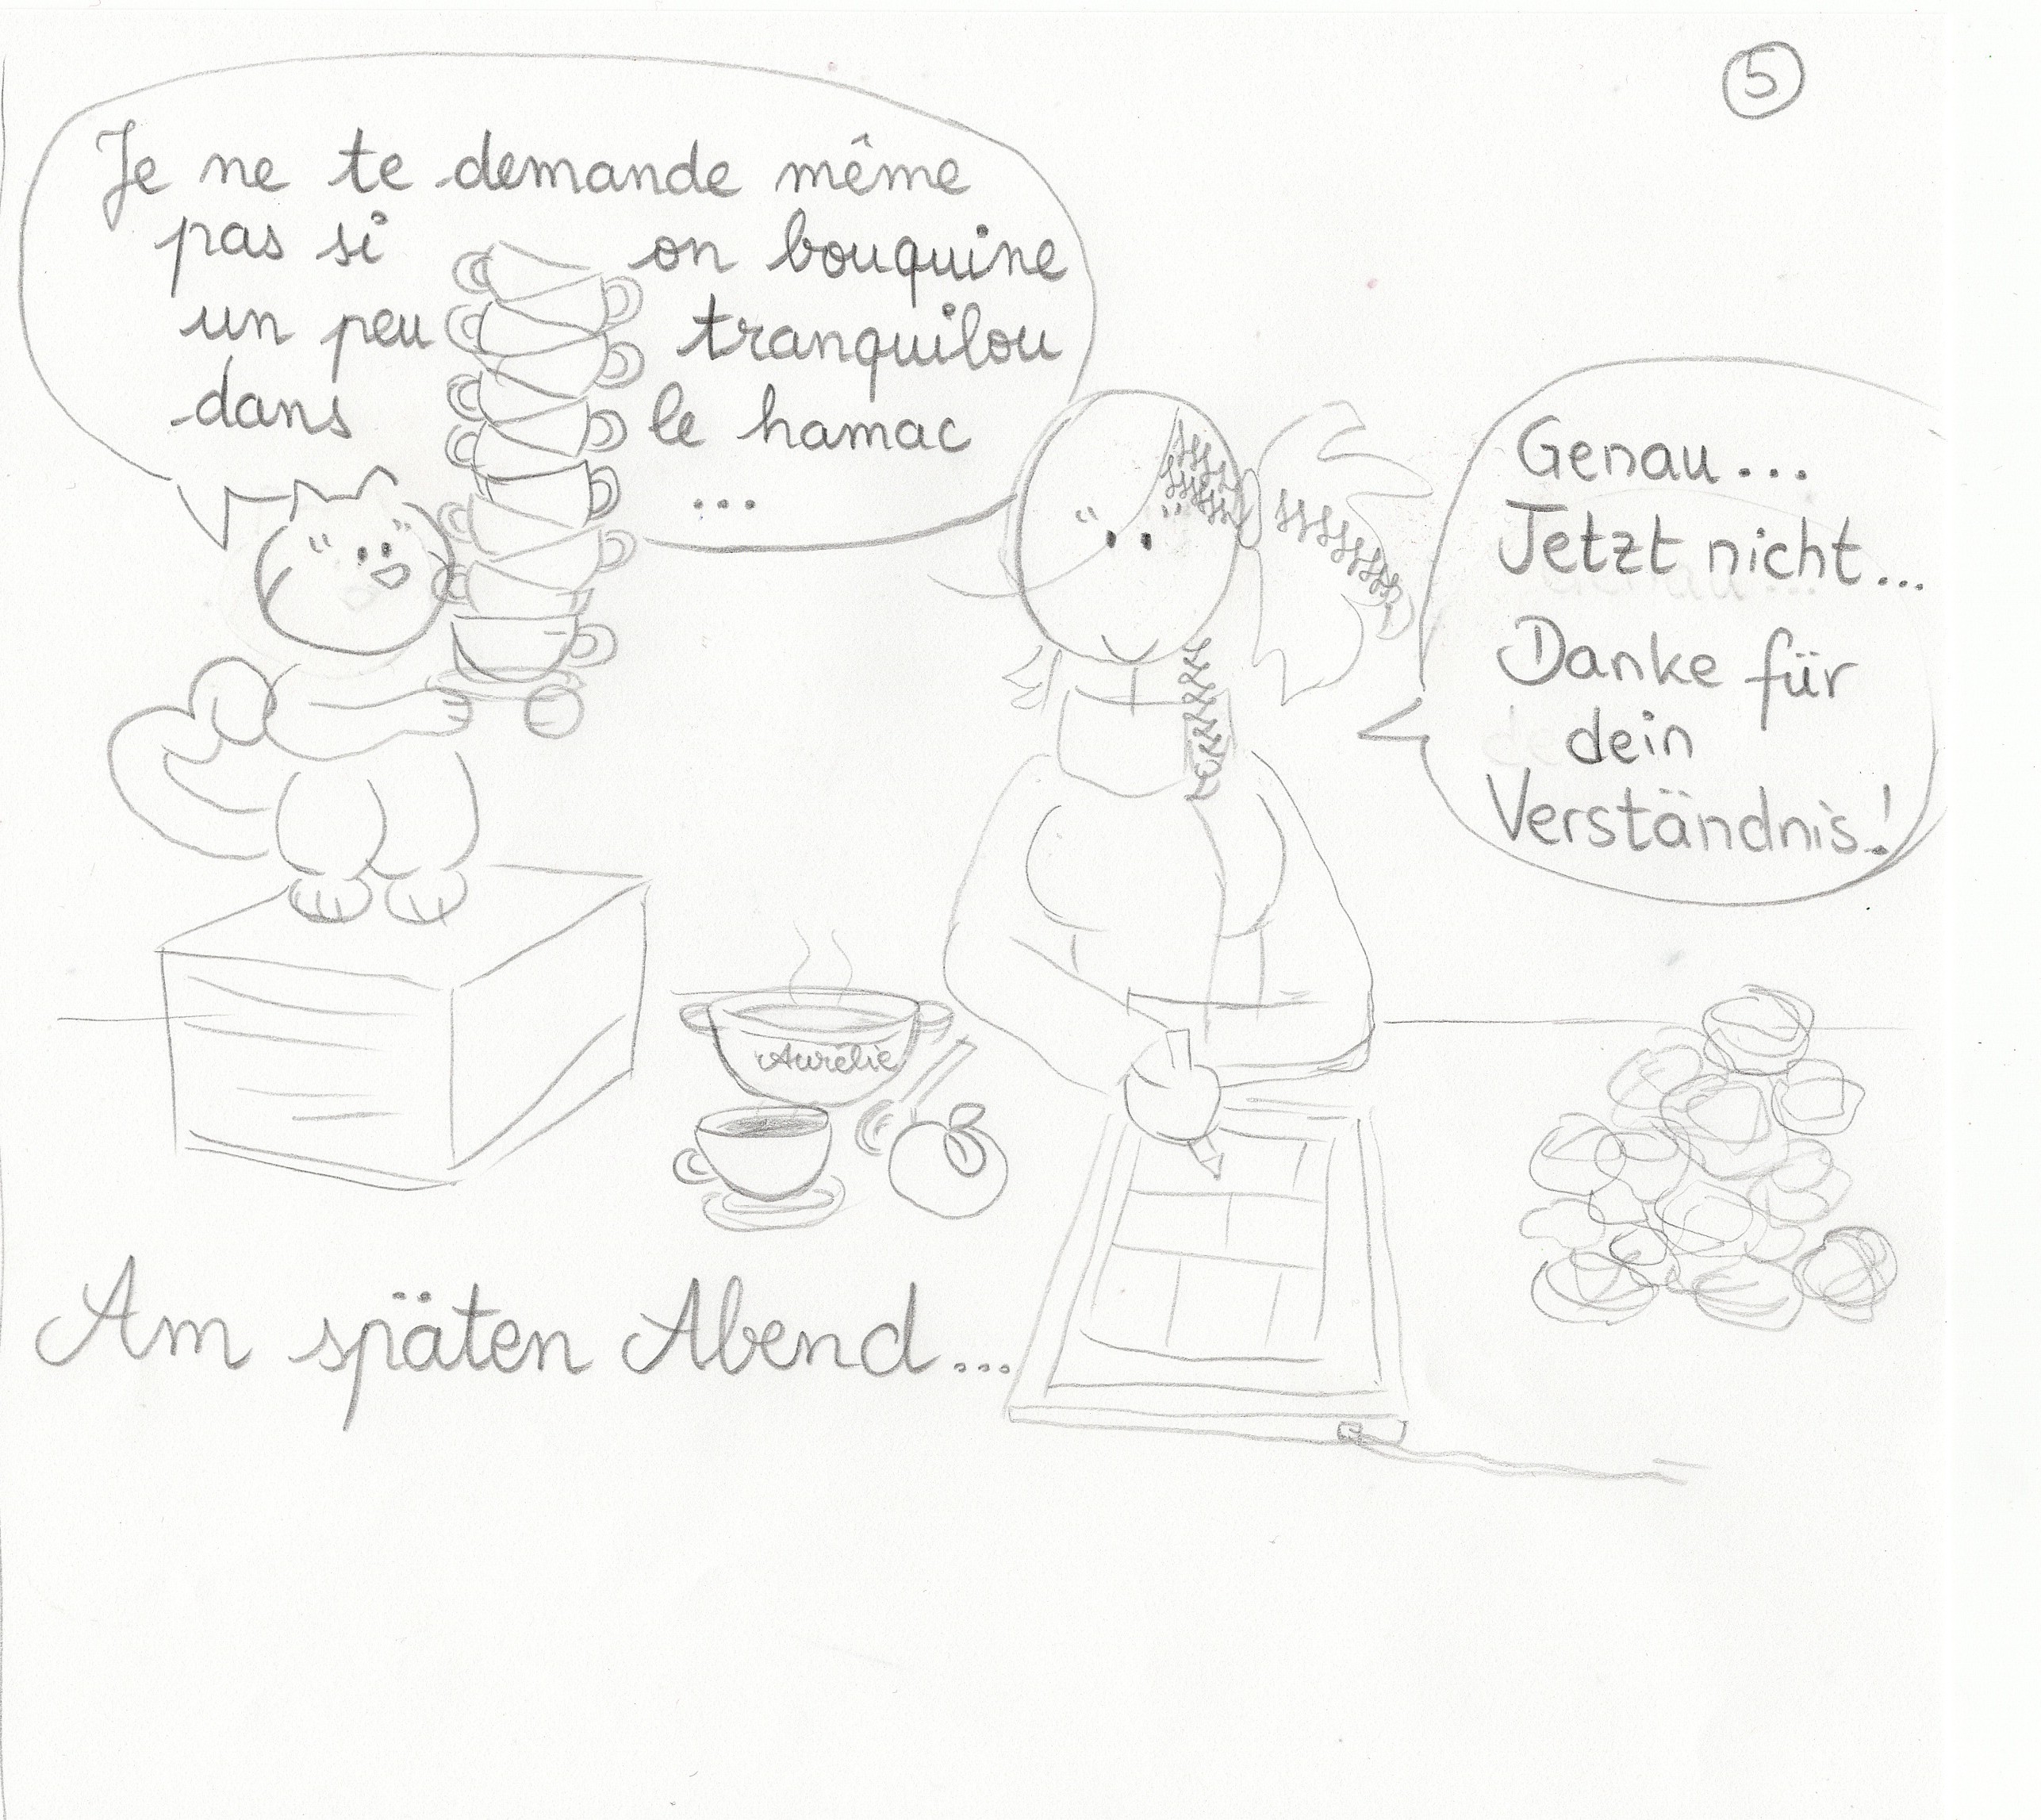 5
Je ne te demande même
pas si on bouquine
un peu tranquilou
dans le hamac
...
Genau...
Jetzt nicht...
Danke für
dein
Verständnis!
Aurélie
Am späten Abend...